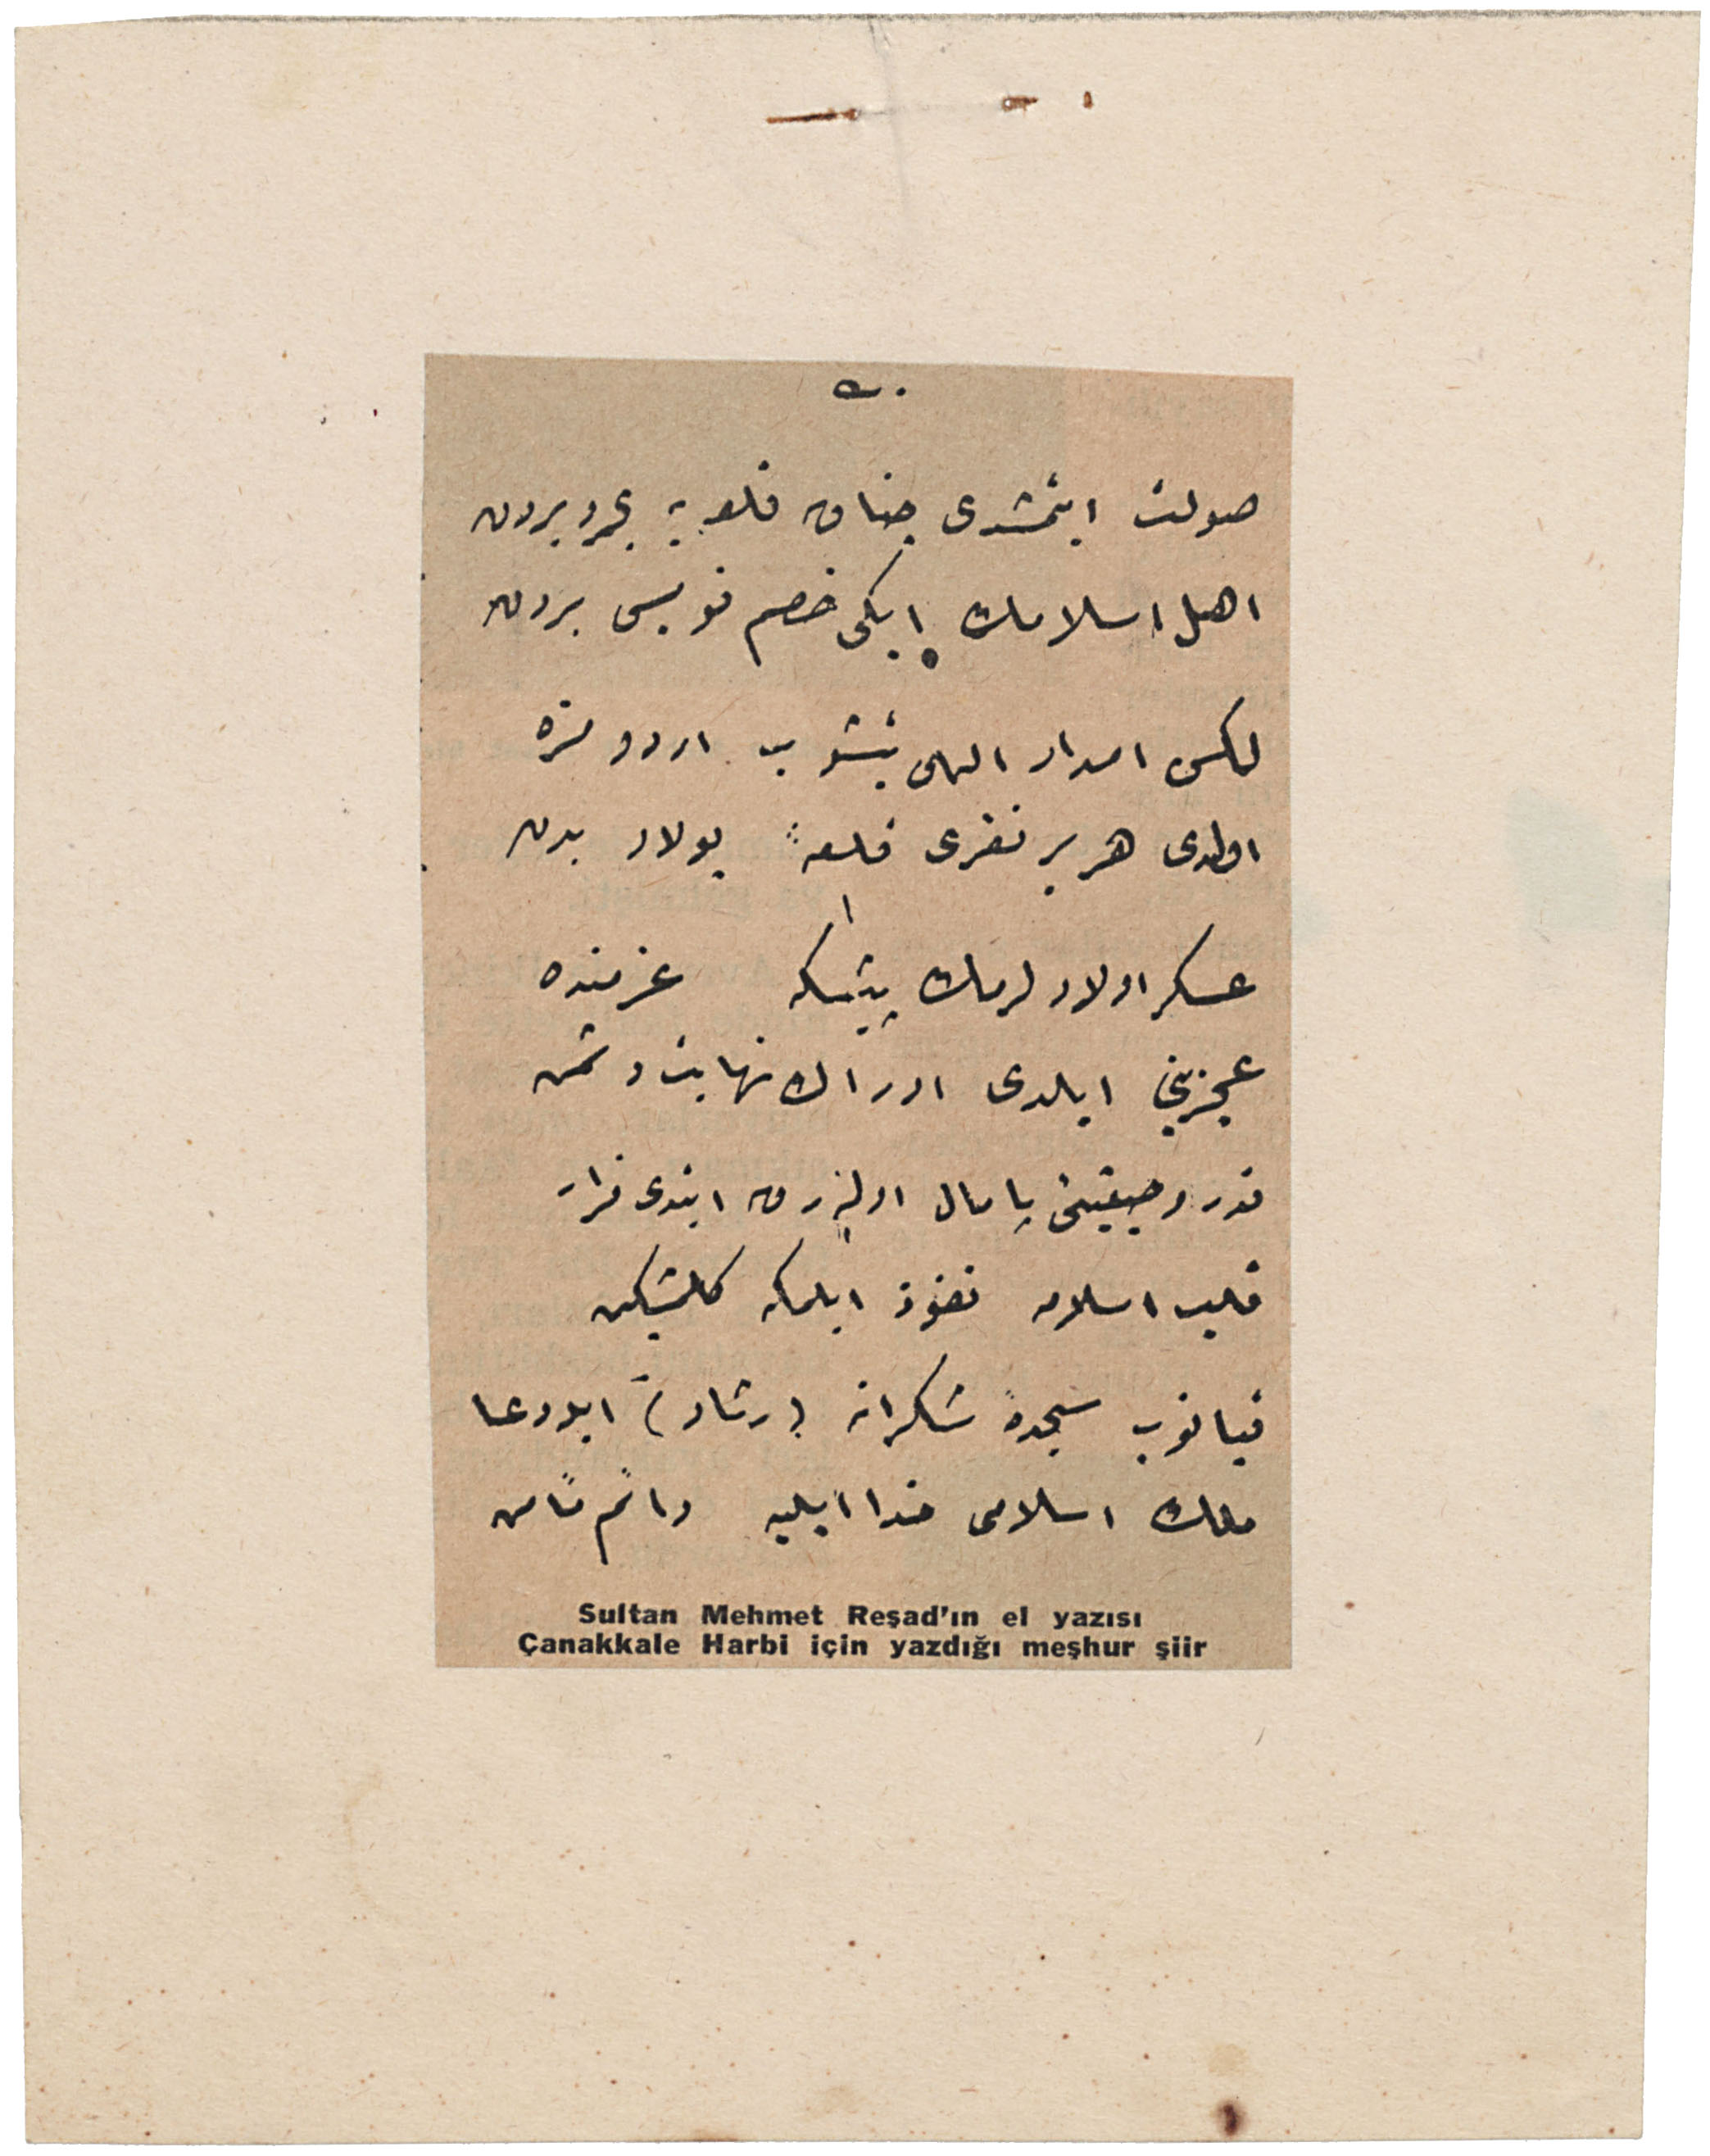 صولت ایتمشدی چناق قلعه‌یه بحر و بردن
اهل اسلامك ایکی خصم قویسی بردن
لکن امداد الهی یتیشوب اردومزه
اولدی هر بر نفری قلعهٔ پولاد بدن
عسکر اولادلرمك پیشکه عزمنده
عجزینی ایلدی ادراك نهایت دشمن
قدر و حیثیتی پامال اوله‌رق ایتدی فرار
قلب اسلامه نفوذ ایلمکه کلمشکن
قپانوب سجدهٔ شکرانه (رشاد) ایلر دعا
ملك اسلامی خدا ایلیه دائم مأمن
Sultan Mehmet Reşad'ın el yazısı
Çanakkale Harbi için yazdığı meşhur şiir